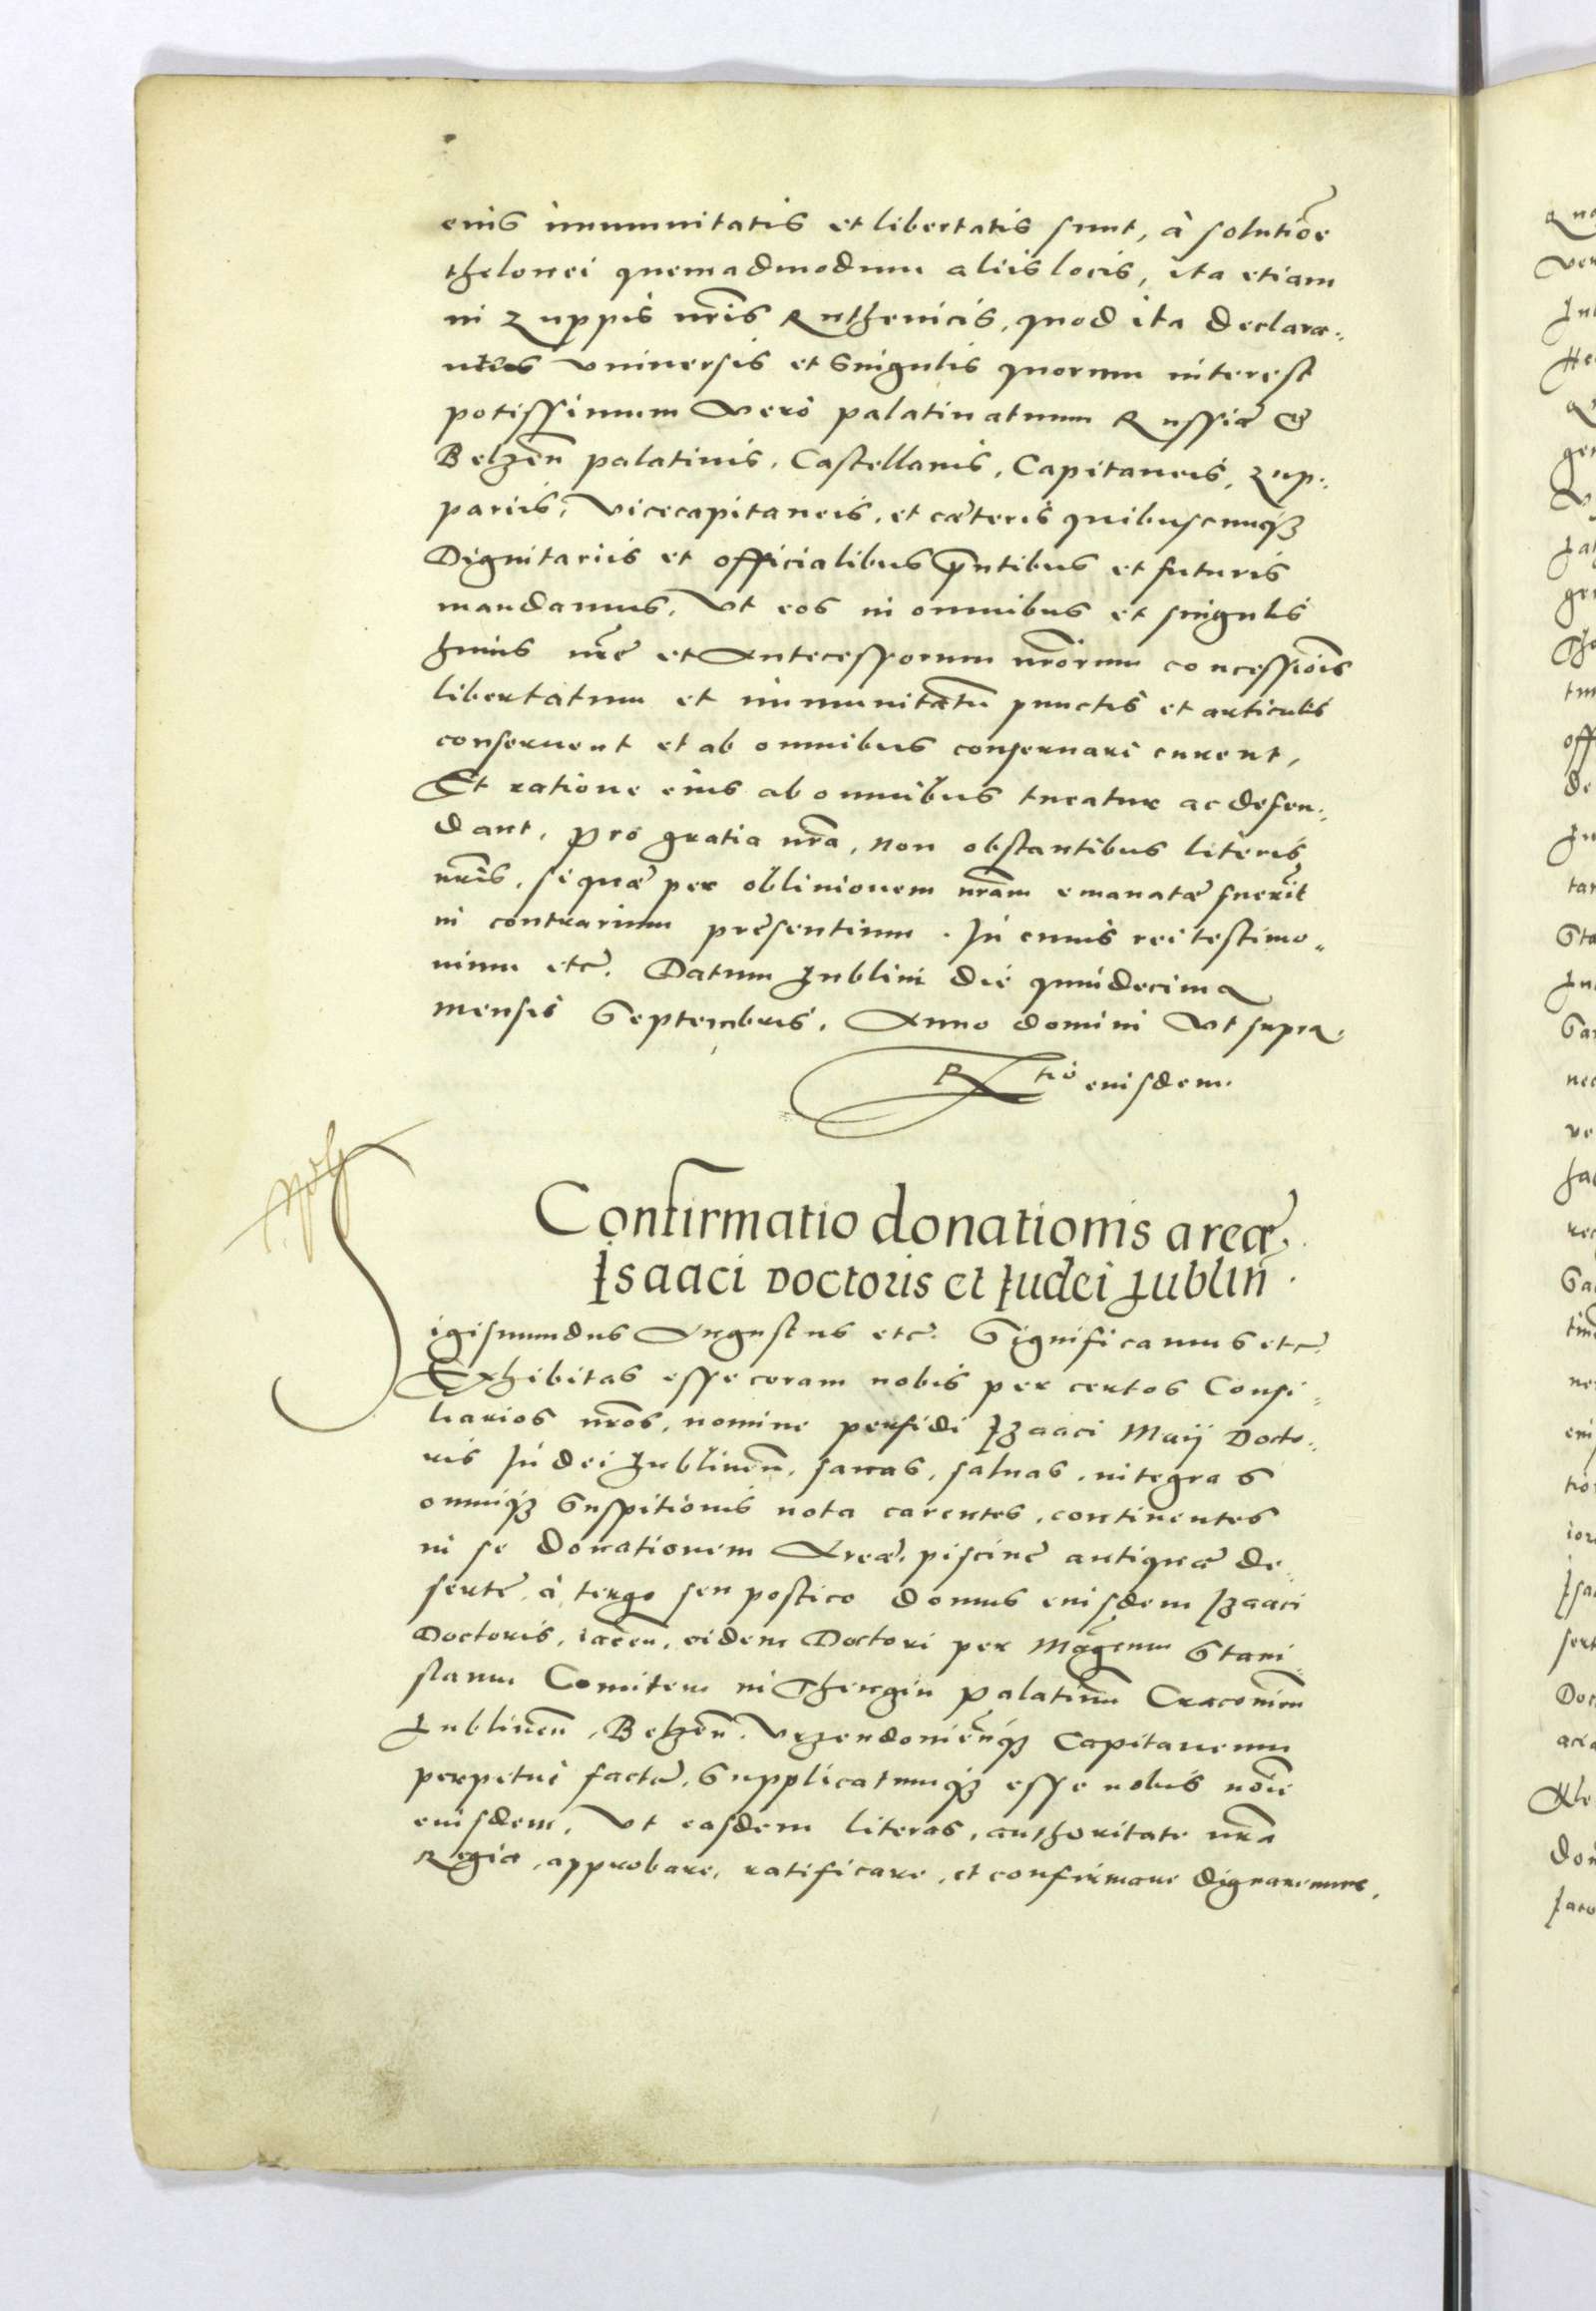 eius immunitatis et libertatis sunt, à solutiõe
thelonei quemadmodum aliis locis, ita etiam
in Zuppis nr̃is Ruthenicis, quod ita declara-
mus vniuersis et Singulis quorum interest
potissimum vero palatinatuum Russiæ &
Belzeñ palatinis, Castellanis, Capitaneis, Zup-
pariis, Vicecapitaneis, et cæteris quibuscunq3
Dignitariis et officialibus p̃ntibus et futuris
mandamus, Vt eos in omnibus et singulis
huius nr̃e et Antecessorum nr̃orum concessiõis
libertatum et immunitatũ punctis et articulis
conseruent et ab omnibus conseruari curent,
Et ratione eius ab omnibus tueatur ac defen-
dant, pro gratia nr̃a, non obstantibus literis
nr̃is, si quæ per obliuionem nr̃am emanatæ fuerĩt
in contrarium presentium. In cuius rei testimo-
nium etc̃. Datum Lublini die quindecima
mensis Septembris, Anno domini Vt supra.
R tio eiusdem.
Confirmatio donationis areæ
Isaaci Doctoris et Iudei Lublin̄.
Sigismundus Augustus etc̃. Significamus etc̃.
Exhibitas esse coram nobis per certos Consi-
liarios nr̃os, nomine perfidi Izaaci Maij Docto-
ris Iudei Lublineñ, sanas, saluas, integras
omniq3 Suspitionis nota carentes, continentes
in se Donationem Areæ, piscinę antiquæ de-
sertę à tergo seu postico domus eiusdem Izaaci
Doctoris, iaceñ, eidem Doctori per Mag̃cum Stani-
slaum Comitem in Thengin palatinũ Cracouieñ
Lublineñ, Belzeñ, Vrzendouieñq3 Capitaneum
perpetui factæ, Supplicatumq3 esse nobis noĩe
eiusdem, Vt easdem literas, authoritate nr̃a
Regia, approbare, ratificare, et confirmare dignaremur,